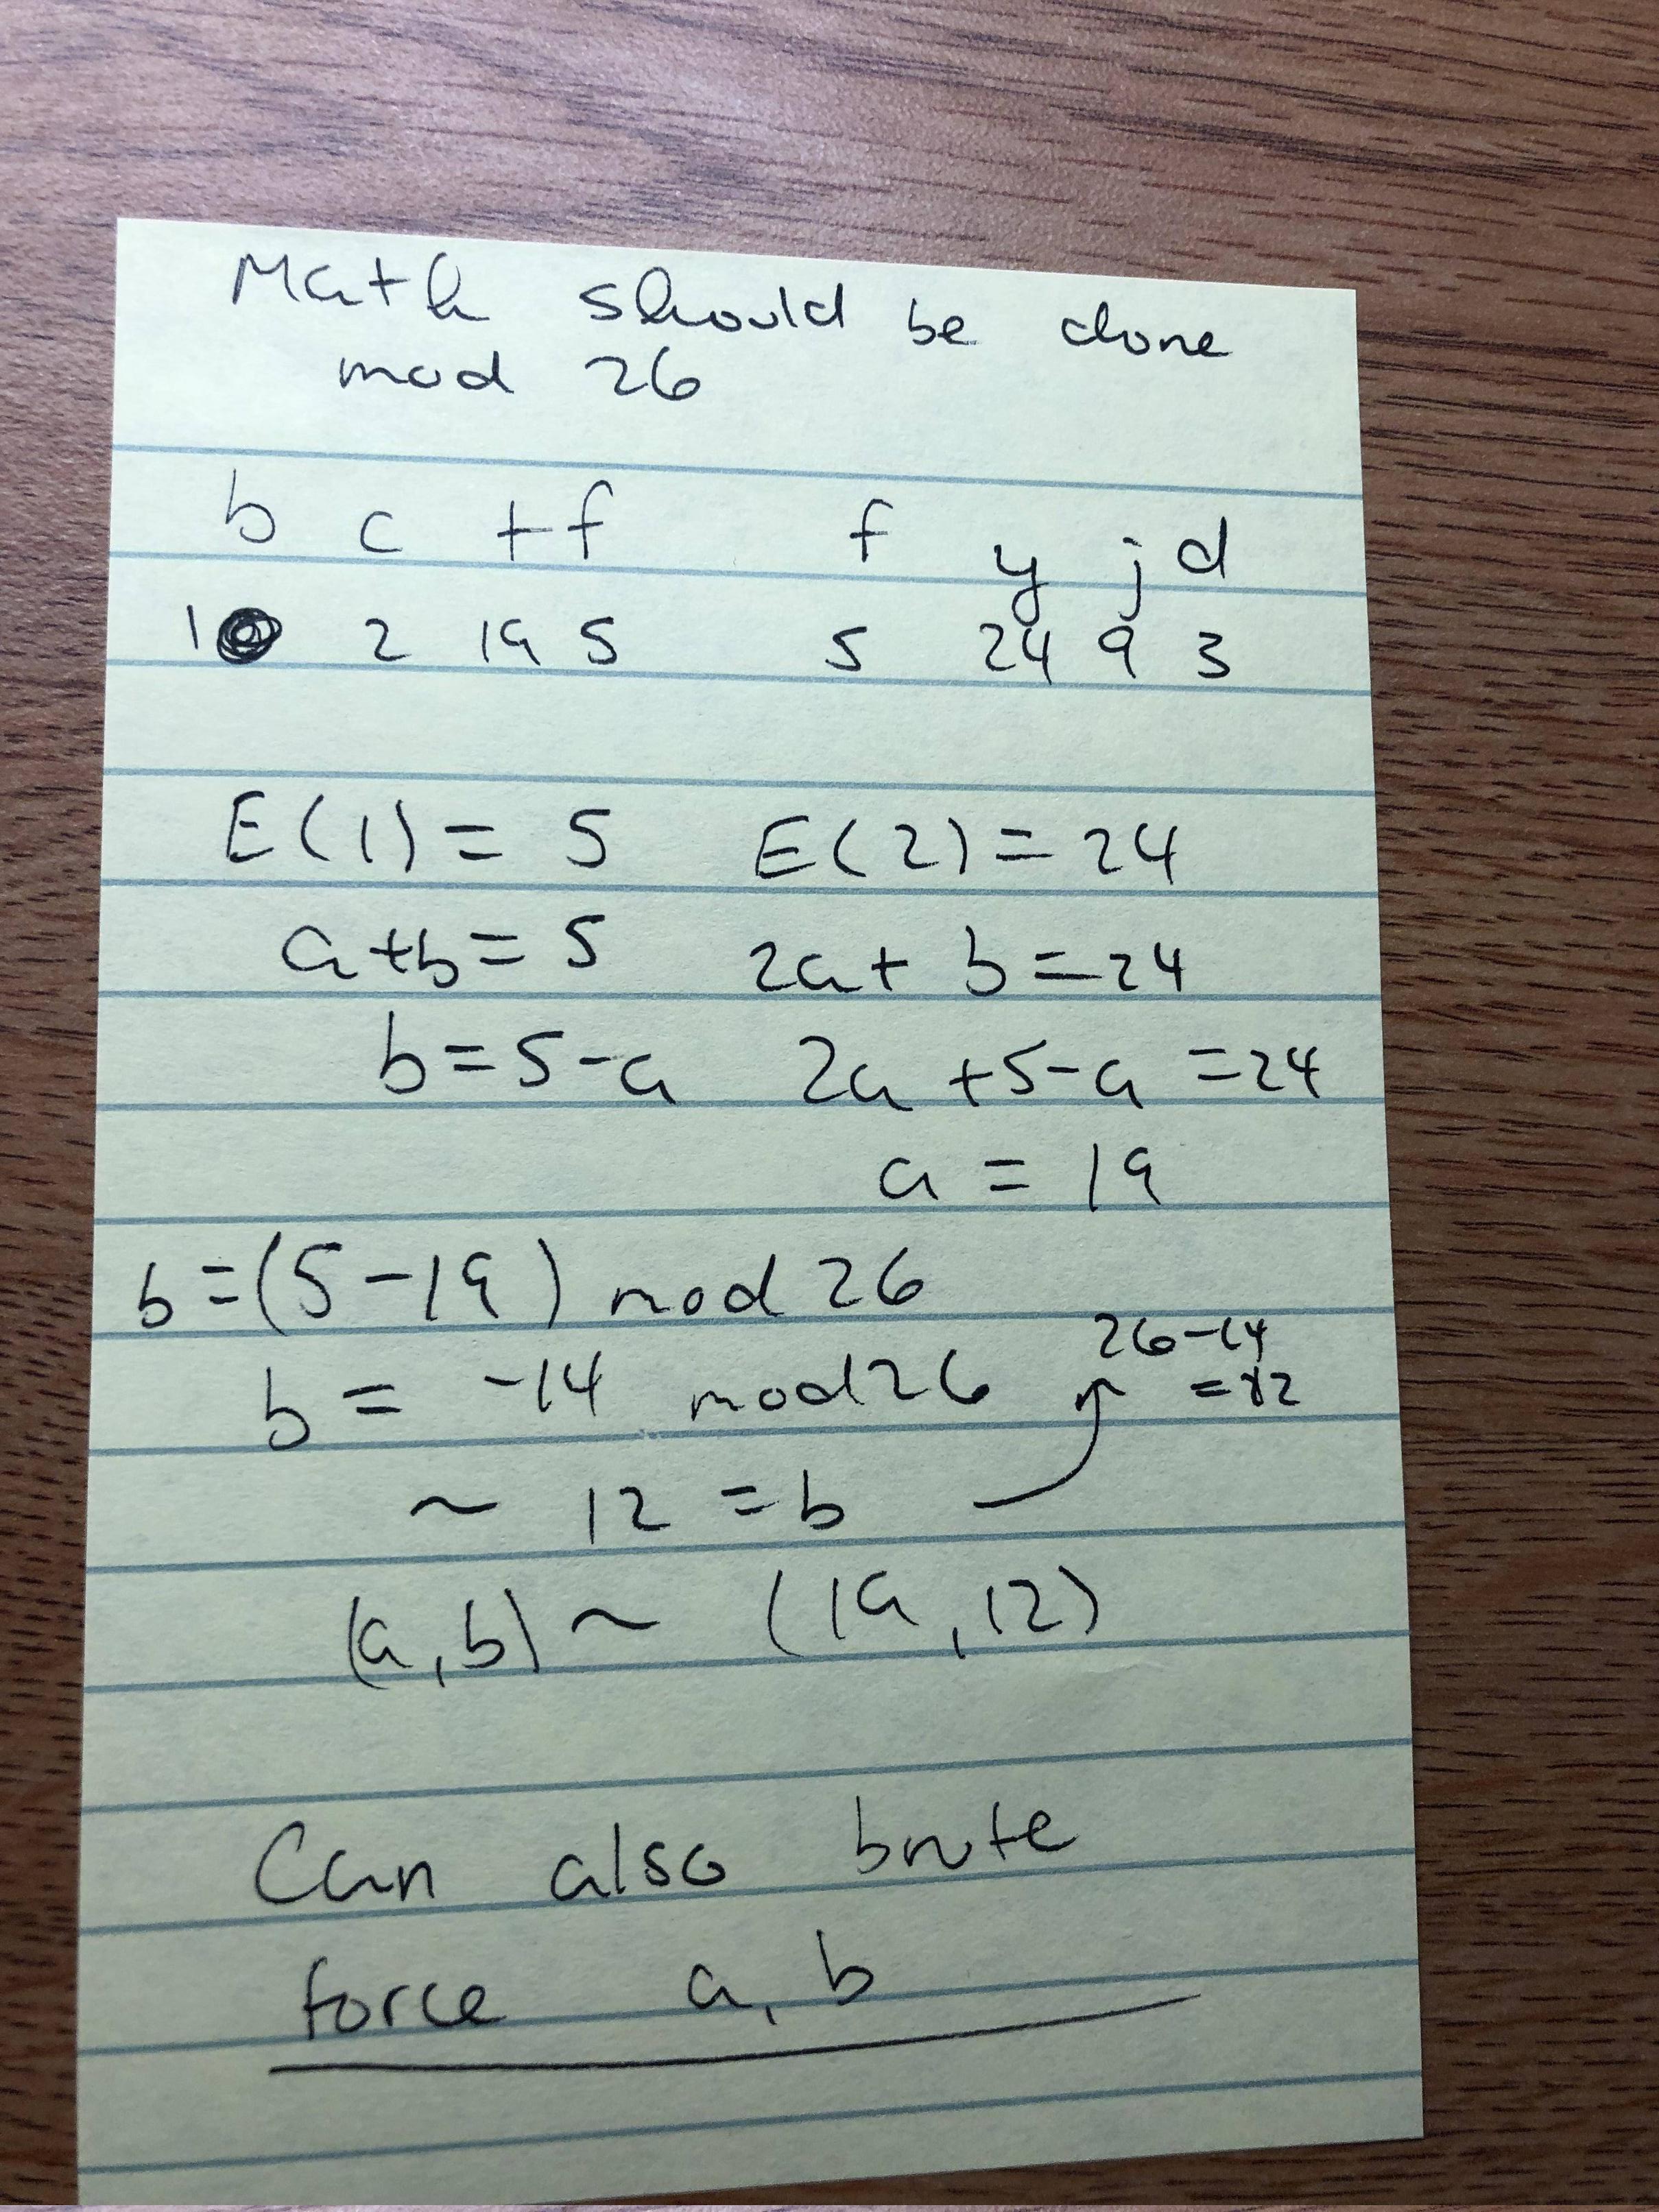 Math should be done
mod 26
b c t f f y j d
1 2 19 5 5 24 9 3
E(1) = 5 E(2) = 24
a+b = 5 2a + b = 24
b = 5 - a 2a + 5 - a = 24
a = 19
b = (5 - 19) mod 26
b = -14 mod 26 26-14
= 12
~ 12 = b
(a, b) ~ (19, 12)
Can also brute
force a, b